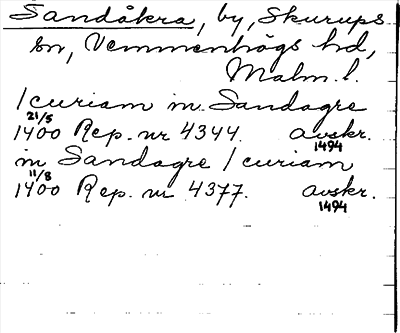 Sandåkra, by, Skurups
sn, Vemmenhögs hd,
Malm. l.
/curiam in Sandagre
21/5
1400 Rep. nr 4344. avskr.
1494
in Sandagre /curiam
11/8
1400 Rep. nr 4377. avskr.
1494